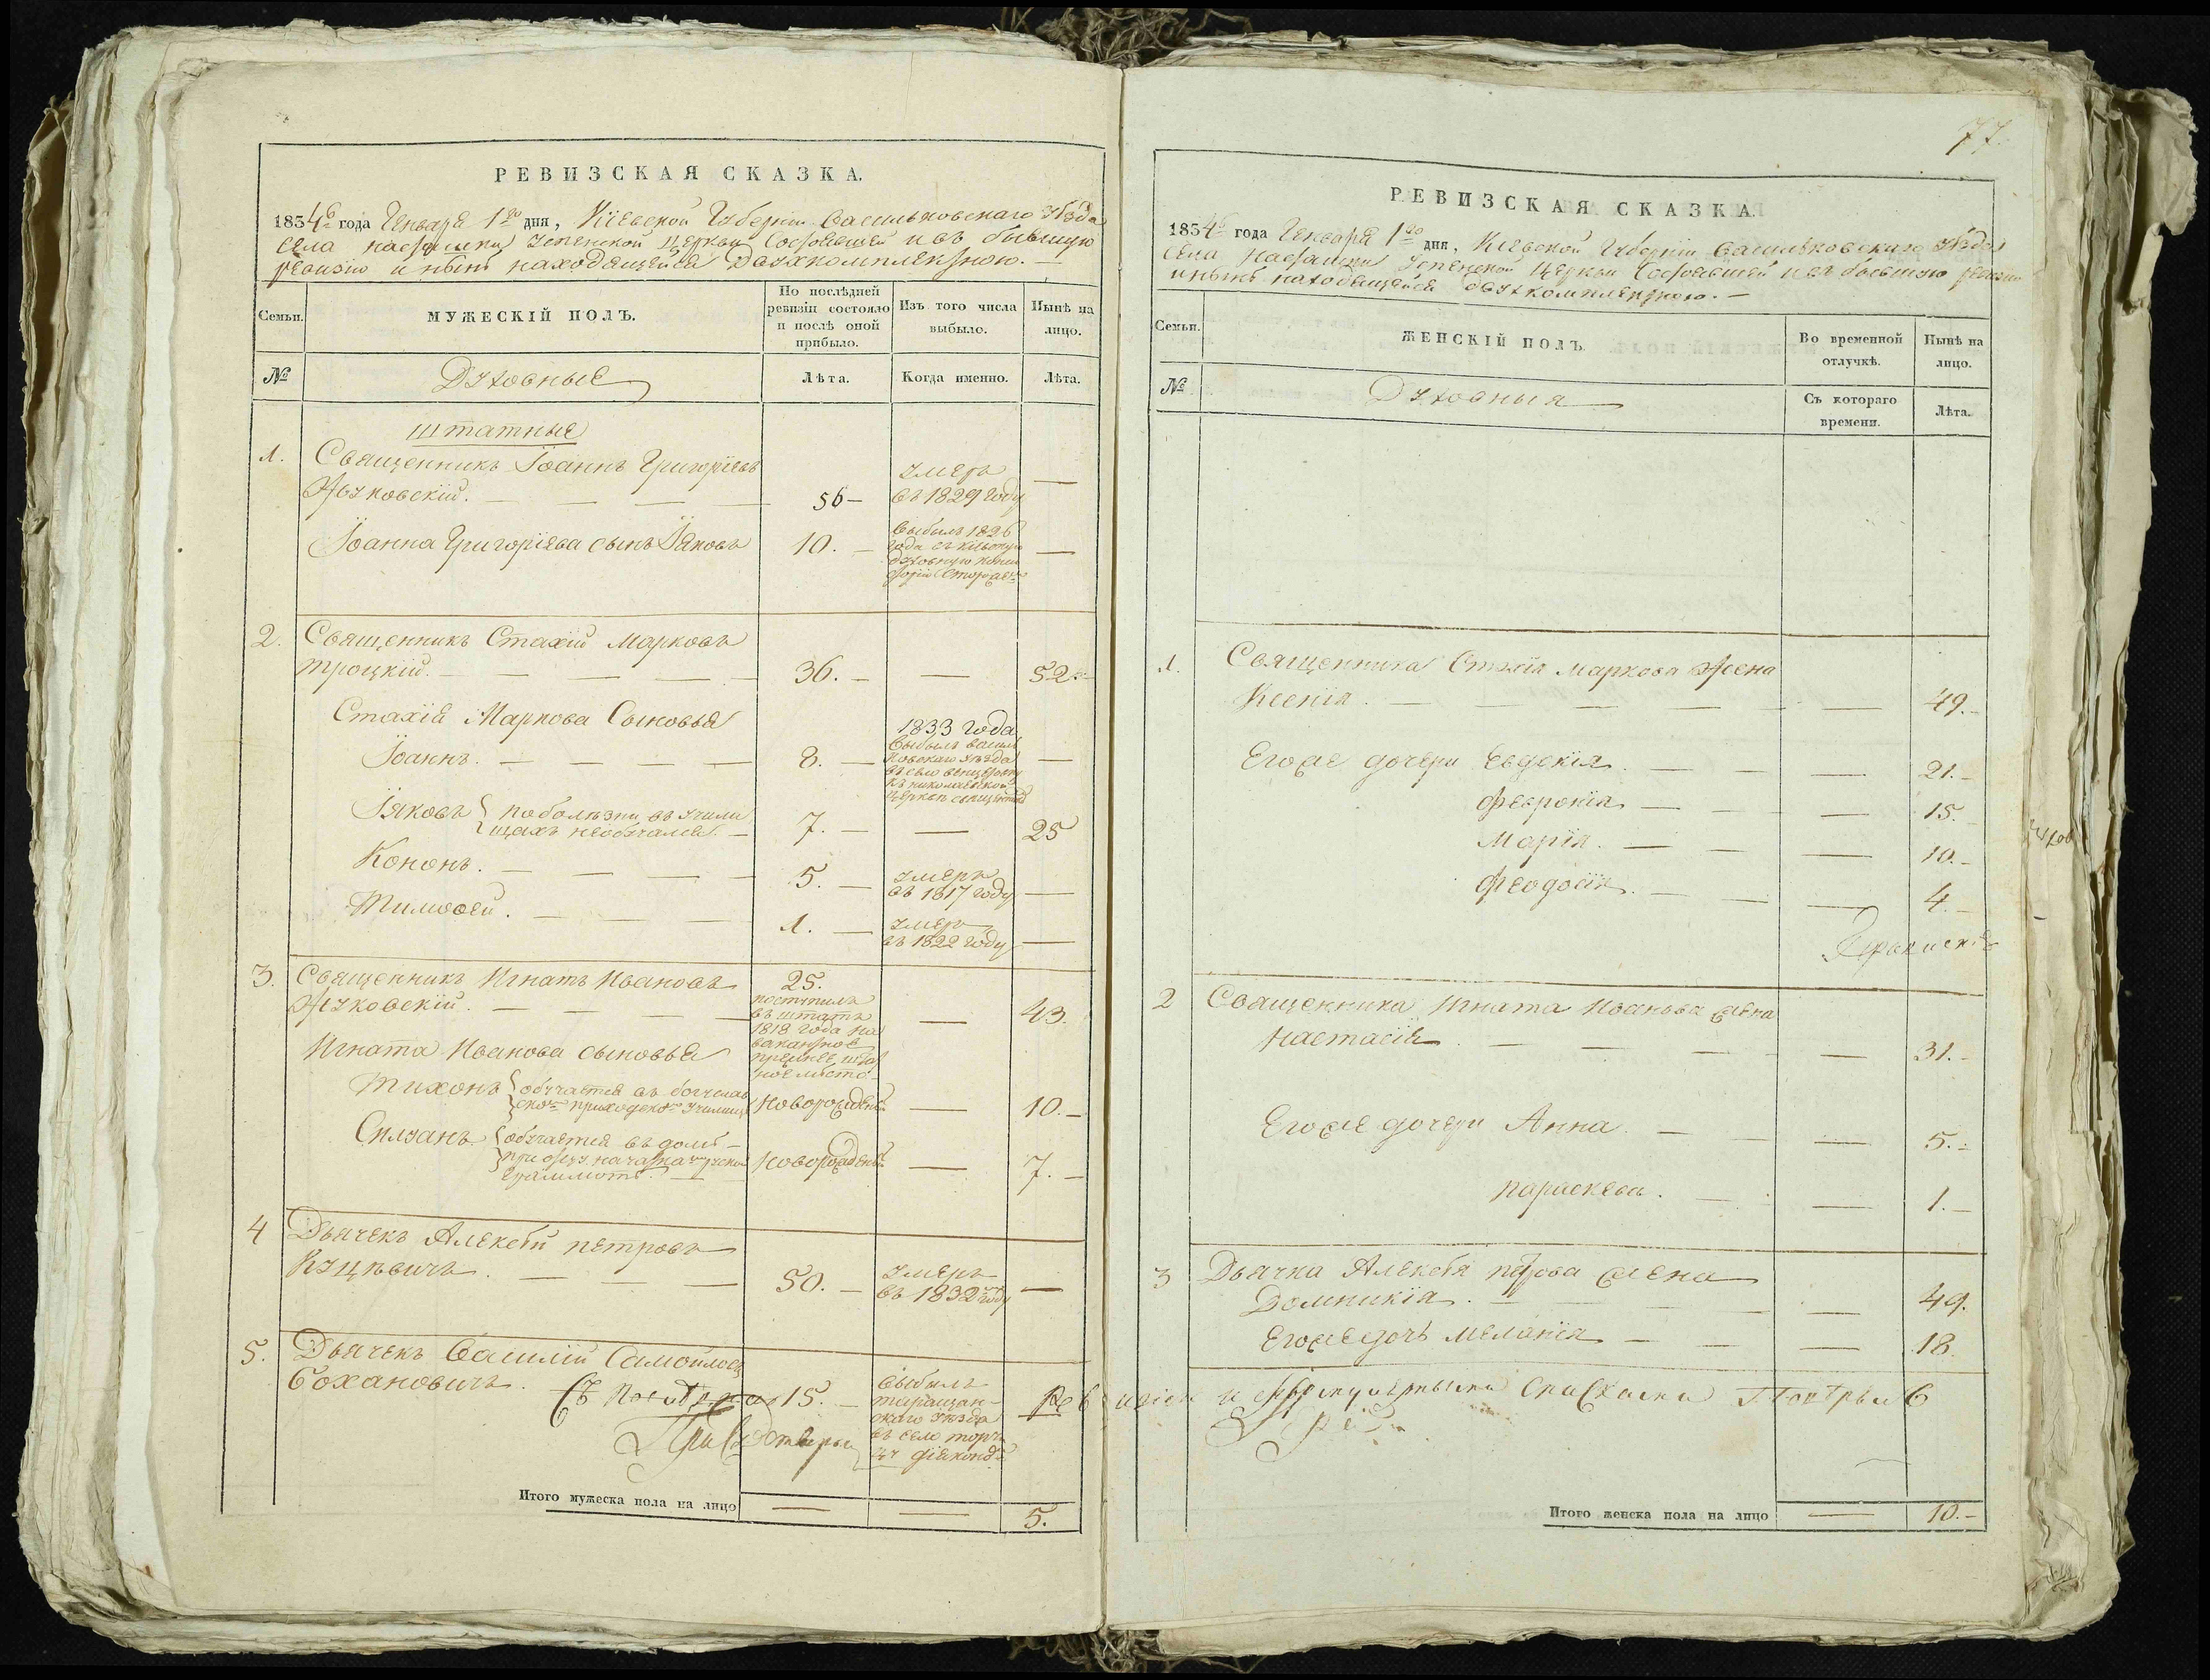 РЕВИЗСКАЯ СКАЗКА.
1834го года Генваря 1го дня, Кіевской Губерніи Васильковскаго Уѣзда
села Насташки Успенской Церкви Состоявшей и въ бывшую
ревизію и нынѣ находящейся Двухкомплектною. —
Семьи.
МУЖЕСКІЙ ПОЛЪ.
По послѣдней
ревизіи состояло
и послѣ оной
прибыло.
Изъ того числа
выбыло.
Нынѣ на
лицо.
№
Духовные
Лѣта.
Когда именно.
Лѣта.
Штатные
1. Священникъ Іоаннъ Григоріевъ
Жуковскій. — 56 — умеръ
въ 1829 году —
Іоанна Григоріева сынъ Іаковъ 10. —
выбылъ 1826
года въ Кіевскую
духовную
—
2. Священникъ Стахій Марковъ
Троцкій. — 36. — — 52.
Стахія Маркова Сыновья
Іоаннъ. — 8. —
1833 года
выбылъ Василь
ковскаго уѣзда
въ село
къ николаевской
церкви
—
Іаковъ { по болѣзни въ учили
щахъ необучался. — 7. — — 25
Кононъ. — 5. — умеръ
въ 1817 году —
Тимофей. — 1. — умеръ
въ 1822 году —
3. Священникъ Игнатъ Ивановъ
Жуковскій. —
25.
поступилъ
въ штатъ
1818 года на
вакантное
прежнее штат
ное мѣсто.
— 43.
Игната Иванова сыновья
Тихонъ { обучается въ богуслав
ском приходском училищ Новорожден — 10. —
Силуанъ { обучается въ домѣ —
при отцу
граммотѣ. — Новорожден — 7. —
4 Дьячекъ Алексѣй Петровъ
Куцѣвичъ. — 50. — умеръ
въ 1832 году —
5. Дьячекъ Василій Самойловъ
Бохановичъ. 15. —
выбылъ
таращан-
скаго уѣзда
въ село
Итого мужеска пола на лицо — — 5.
77.
РЕВИЗСКАЯ СКАЗКА.
1834го года Генваря 1го дня, Кіевской Губерніи Васильковскаго уѣзда
села Насташки Успенской Церкви Состоявшей и въ бывшую ревизію
и нынѣ находящейся двухкомплектною. —
Семьи.
ЖЕНСКІЙ ПОЛЪ.
Во временной
отлучкѣ.
Нынѣ на
лицо.
№
Духовныя
Съ котораго
времени.
Лѣта.
1. Священника Стахія Маркова Жена
Ксенія. — — 49. —
Егоже дочери Евдокія. — — 21. —
Февронія — — 15. —
Марія. — — 10. —
Феодосія. — — 4. —
2 Священника Игната Иванова жена
Настасія. — — 31. —
Егоже дочери Анна. — — 5. —
Параскева. — — 1. —
3 Дьячка Алексѣя Петрова жена
Домникія. — — 49.
Егоже дочь Меланія — — 18.
Итого женска пола на лицо — 10. —